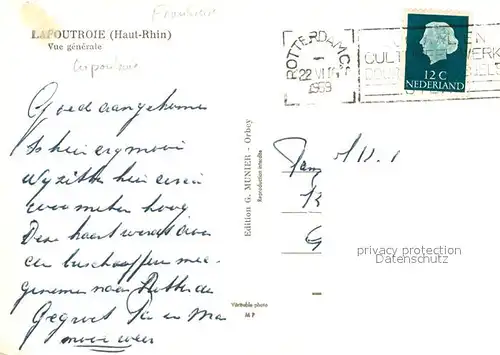 Frankreich
LAPOUTROIE (Haut-Rhin)
Vue générale
Lapoutroie
ROTTERDAM CS
22 VII
1959
12 C
NEDERLAND
Goed aangekomen
Is hier erg mooi
Wy zitten hier
meter hoog
Deze kaart werdt door
een buschauffeur mee-
genomen naar Rotterdam
Gegroet Pa en Ma
mooi weer
Edition G. MUNIER - Orbey
Reproduction interdite
Véritable photo
M P
Fam
privacy protection
Datenschutz